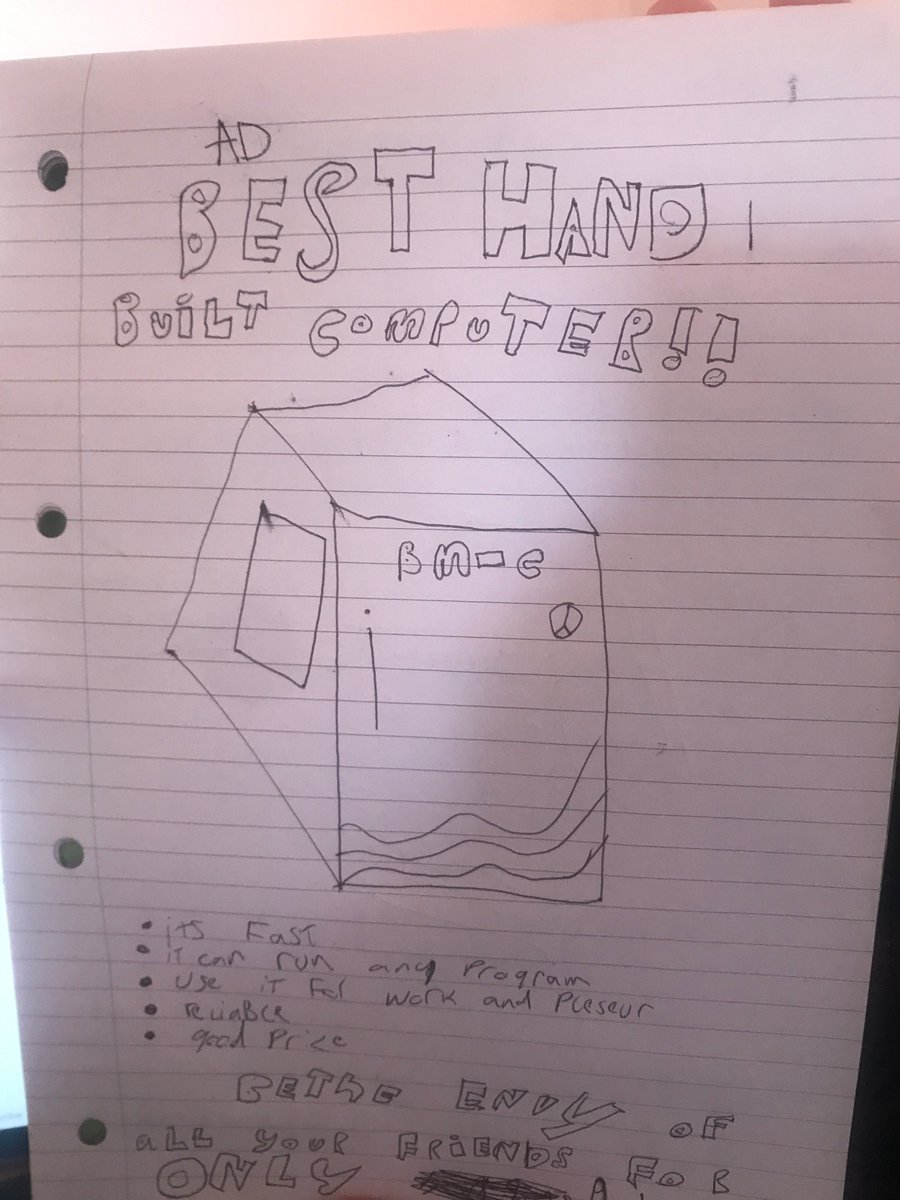 AD
BEST HAND
BUiLT COMPUTER!!
BM-C
• its Fast
• it can run any Program
• use it For work and Pleseur
• ReliaBLe
• good Price
BE THE ENVY OF
aLL YOUR FRiENDS FOR
ONLY